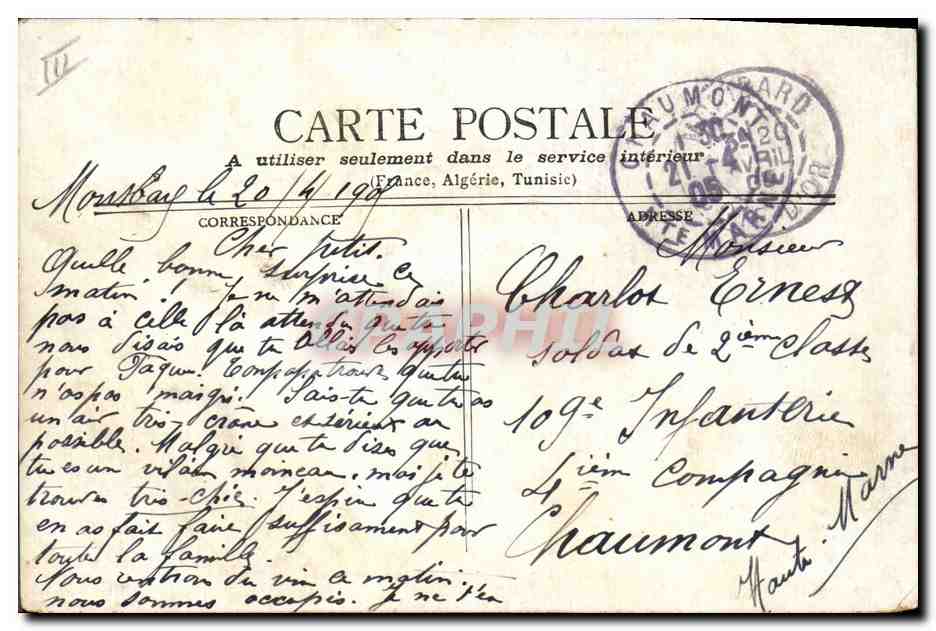 III
CARTE POSTALE
A utiliser seulement dans le service intérieur
(France, Algérie, Tunisie)
le 20/4/190
CORRESPONDANCE
ADRESSE
CHAUMONT
HTE MARNE
21 -4
05
Cher petit.
Quelle bonne surprise ce
matin! Je ne m'attendais
pas à celle là attendu que tu
nous disais que tu allais les apporter
pour Pâques. Ton papa trouve que tu
n'as pas maigri. Sais-tu que tu as
un air très crâne et sérieux au
possible. Malgré que tu dises que
tu es un vilain moineau, mais je te
trouve très-chic. J'espère que tu
en as fait faire suffisament pour
toute la famille.
Nous rentrons du vin ce matin.
nous sommes occupés. Je ne t'en
Monsieur
Charlot Ernest
soldat de 2ième classe
109e Infanterie
4ièm compagnie
Chaumont
Haute Marne